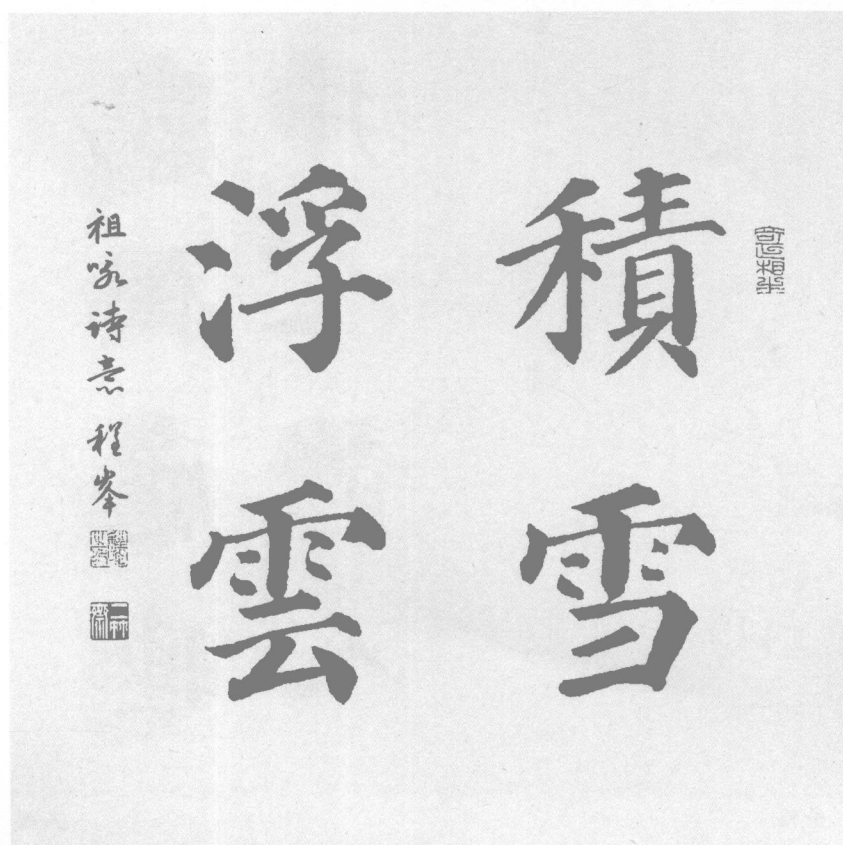 積雪
浮雲
祖咏诗意 程峯